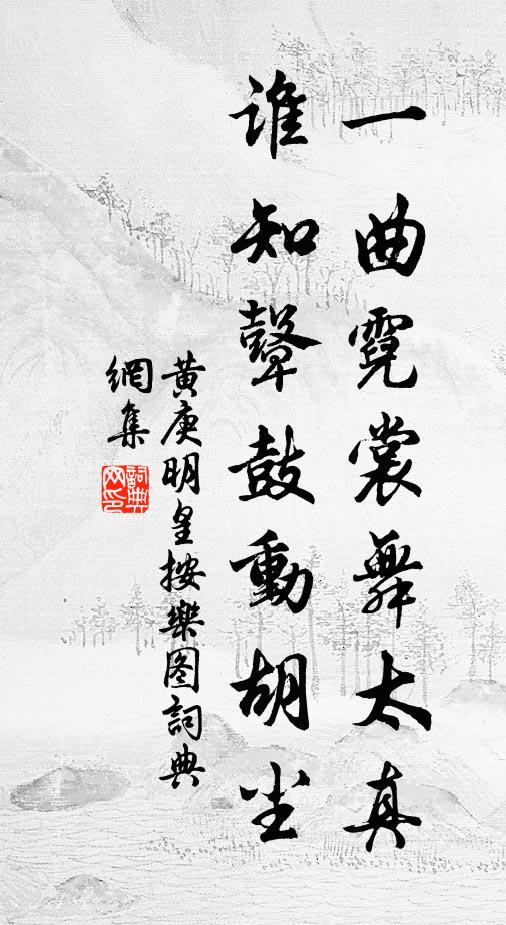 一曲霓裳舞太真
谁知鼙鼓動胡尘
黄庚明皇按樂图詞典
網集
詞典
网印